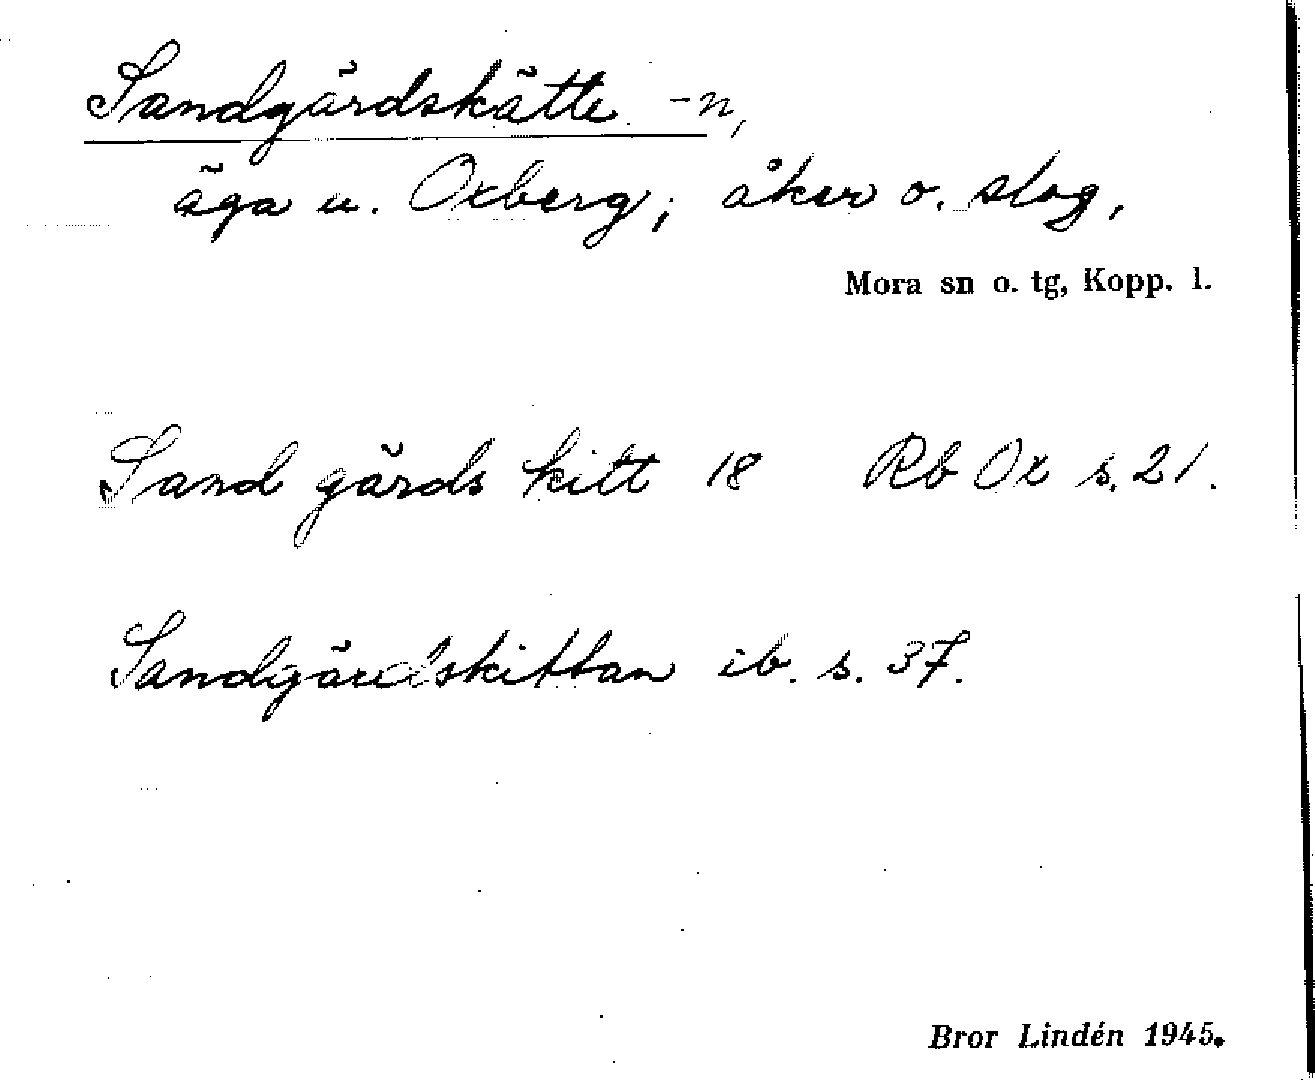 Sandgärdskätte -n,
äga u. Oxberg; åker o. slog,
Mora sn o. tg, Kopp. l.
Sand gärds kitt 18 Rb Ox s. 21.
Sandgärdskittan ib. s. 37.
Bror Lindén 1945.